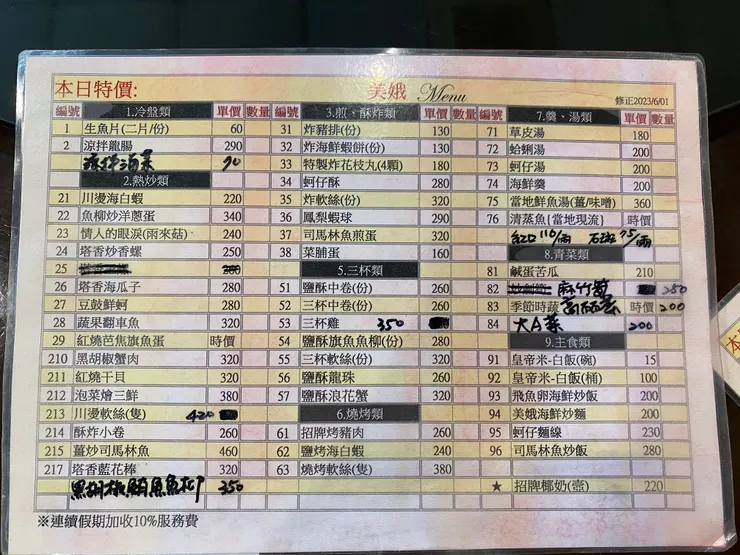 本日特價:
美娥 Menu
修正2023/6/01
編號 1.冷盤類 單價 數量
1 生魚片(二片/份) 60
2 涼拌龍腸 290
涼拌海菜 90
2.熱炒類
21 川燙海白蝦 220
22 魚柳炒洋蔥蛋 340
23 情人的眼淚(雨來菇) 240
24 塔香炒香螺 250
25
26 塔香海瓜子 280
27 豆鼓鮮蚵 280
28 蔬果翻車魚 320
29 紅燒芭焦旗魚蛋 時價
210 黑胡椒蟹肉 320
211 紅燒干貝 320
212 泡菜燴三鮮 380
213 川燙軟絲(隻) 420
214 酥炸小卷 260
215 薑炒司馬林魚 460
217 塔香藍花棒 320
黑胡椒鯛魚魚柳 350
編號 3.煎、酥炸類 單價 數量
31 炸豬排(份) 130
32 炸海鮮蝦餅(份) 130
33 特製炸花枝丸(4顆) 180
34 蚵仔酥 280
35 炸軟絲(份) 380
36 鳳梨蝦球 290
37 司馬林魚煎蛋 180
38 菜脯蛋 160
5.三杯類
51 鹽酥中卷(份) 260
52 三杯中卷(份) 260
53 三杯雞 350
54 鹽酥旗魚魚柳(份) 280
55 三杯軟絲(份) 380
56 鹽酥龍珠 260
57 鹽酥浪花蟹 320
6.燒烤類
61 招牌烤豬肉 260
62 燒烤海白蝦 240
63 燒烤軟絲(隻) 380
編號 7.羹、湯類 單價 數量
71 草皮湯 180
72 蛤蜊湯 200
73 蚵仔湯 200
74 海鮮羹 200
75 當地鮮魚湯(薑/味噌) 360
76 清蒸魚{當地現流} 時價
紅口110/兩 石斑75/兩
8.青菜類
81 鹹蛋苦瓜 210
82 麻竹筍 250
83 季節時蔬 高麗菜 時價 200
84 大A菜 200
9.主食類
91 皇帝米-白飯(碗) 15
92 皇帝米-白飯(桶) 100
93 飛魚卵海鮮炒飯 200
94 美娥海鮮炒麵 200
95 蚵仔麵線 230
96 司馬林魚炒飯 280
★ 招牌椰奶(壺) 220
※連續假期加收10%服務費